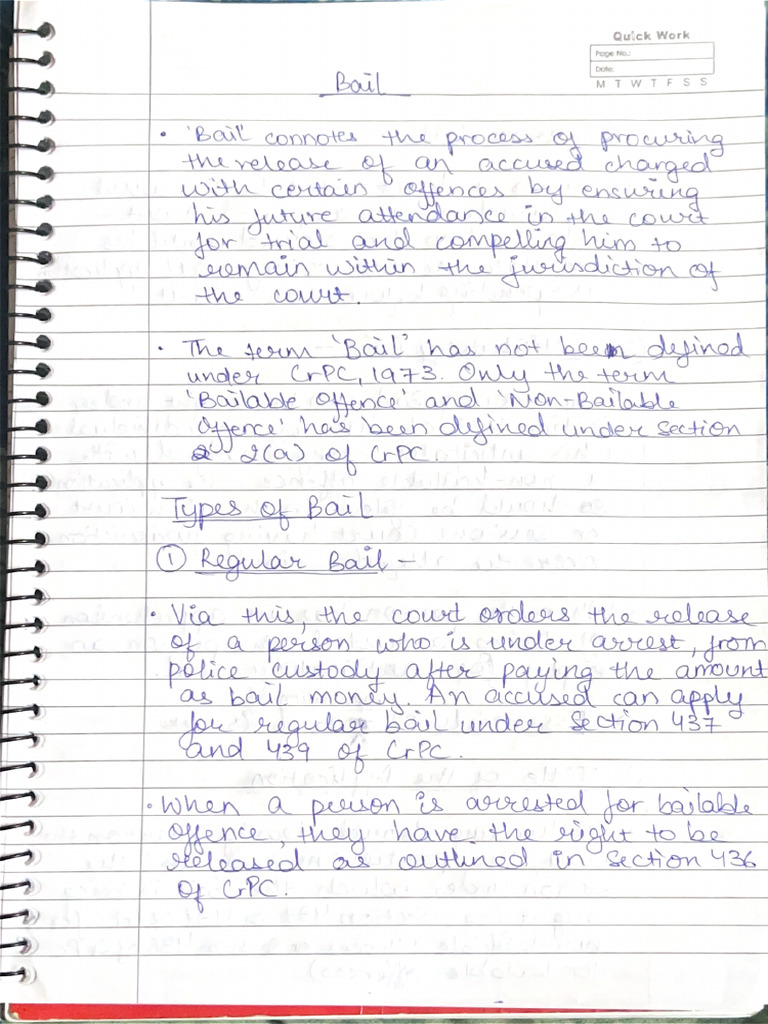 Quick Work
Page No.:
Date:
M T W T F S S
Bail
• 'Bail' connotes the process of procuring
the release of an accused charged
with certain offences by ensuring
his future attendance in the court
for trial and compelling him to
remain within the jurisdiction of
the court.
• The term 'Bail' has not been defined
under CrPC, 1973. Only the term
'Bailable Offence' and 'Non-Bailable
Offence' has been defined under section
2(a) of CrPC.
Types of Bail
① Regular Bail -
• Via this, the court orders the release
of a person who is under arrest, from
police custody after paying the amount
as bail money. An accused can apply
for regular bail under Section 437
and 439 of CrPC.
• When a person is arrested for bailable
offence, they have the right to be
released as outlined in Section 436
of CrPC.